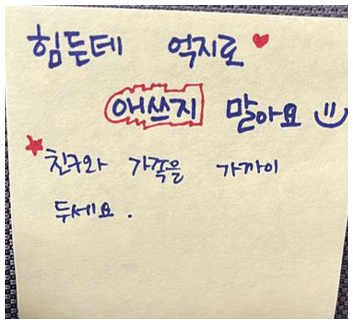 힘든데 억지로 ♥
애쓰지 말아요 :)
★친구와 가족을 가까이
두세요.